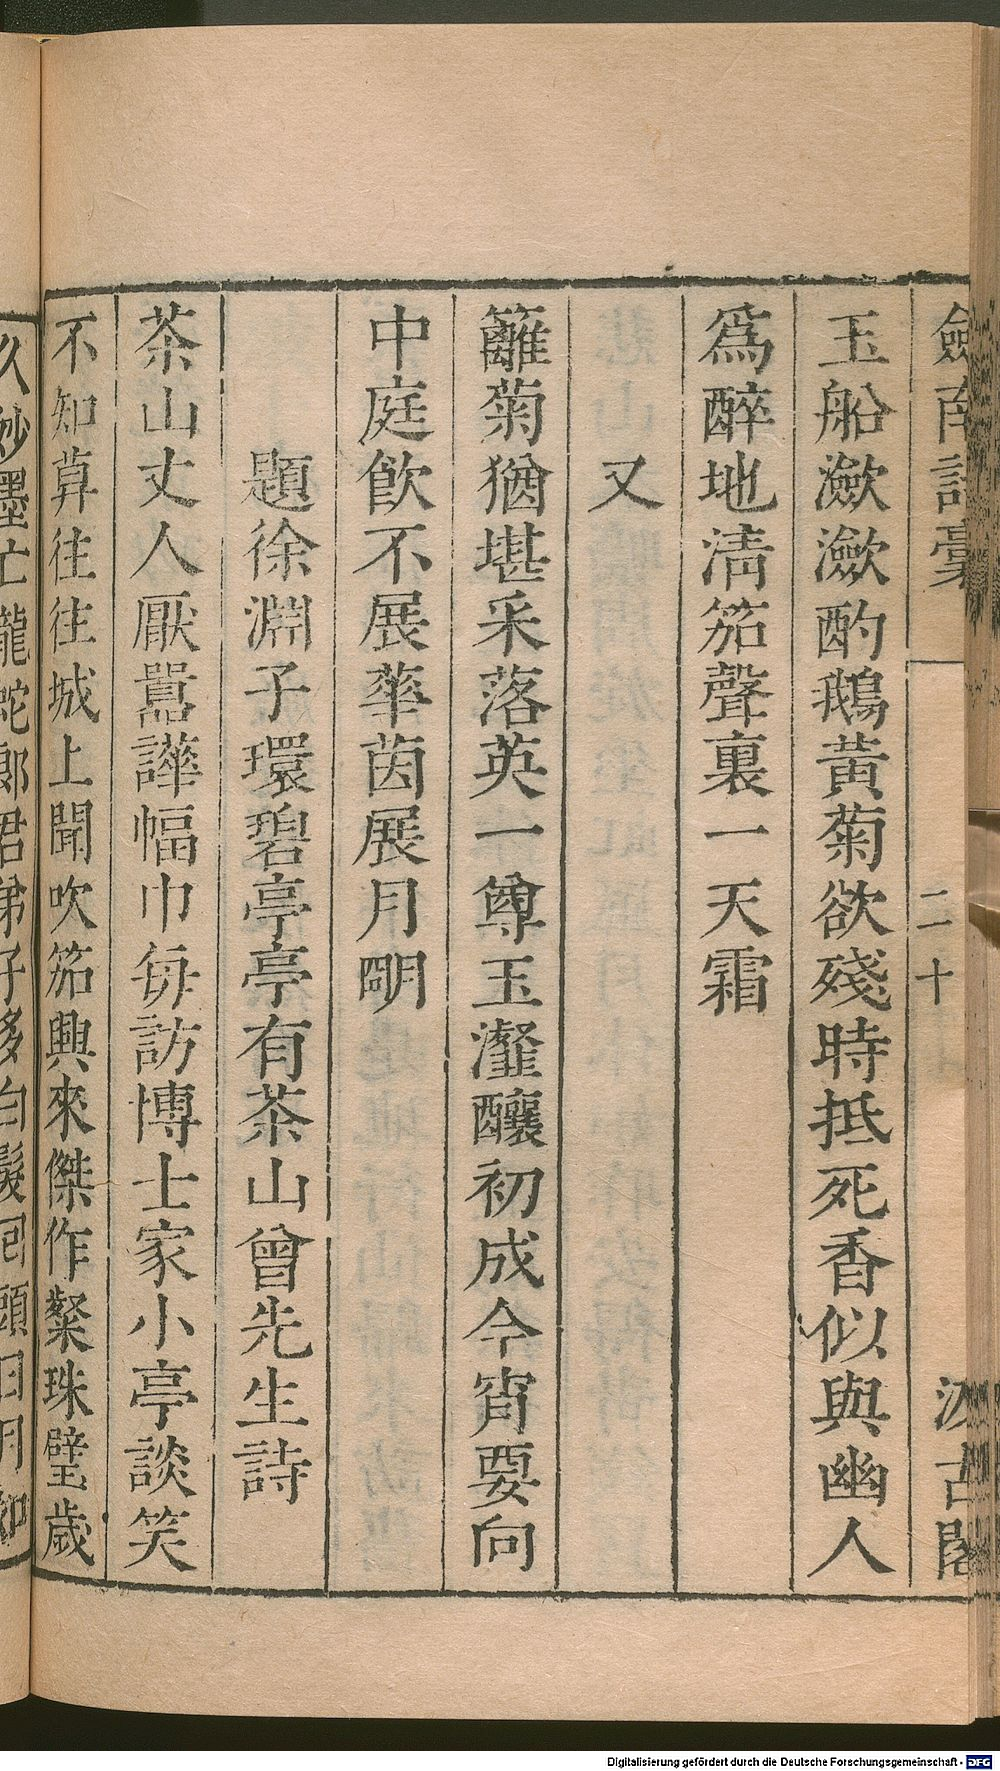 劍南詩稾 二十 汲古閣
玉船瀲瀲酌鵝黃菊欲殘時抵死香似與幽人
爲醉地淸笳聲裏一天霜
又
籬菊猶堪采落英一尊玉瀣釀初成今宵要向
中庭飮不展華茵展月朙
題徐淵子環碧亭亭有茶山曾先生詩
茶山丈人厭囂譁幅巾每訪博士家小亭談笑
不知算往往城上聞吹笳興來傑作粲珠璧歲
久妙墨亡龍蛇郞君弟子多白髮回頭日月如
Digitalisierung gefördert durch die Deutsche Forschungsgemeinschaft - DFG